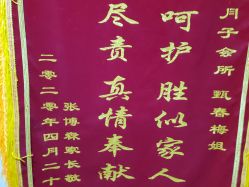 月子会所 甄春梅姐
呵护胜似家人
尽责真情奉献
张博森家长敬
二零二零年四月二十